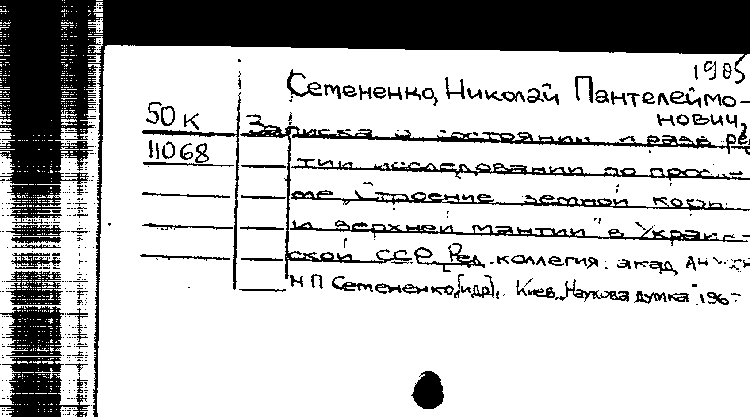 1905
Семененко, Николай Пантелеймо-
нович,
50К Записка о состоянии и разв
11068 тии исследований по проб
ме „Строение земной коры
и верхней мантии" в Украин-
ской ССР. Ред. коллегия: акад. АН
Н П Семененко [и др]. Киев, „Наукова думка"